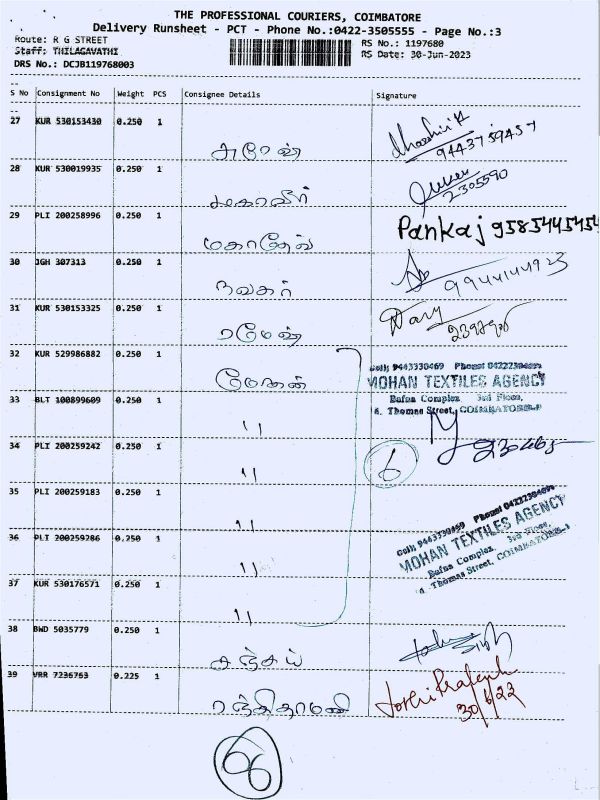 THE PROFESSIONAL COURIERS, COIMBATORE
Delivery Runsheet - PCT - Phone No.:0422-3505555 - Page No.:3
Route: R G STREET
RS No.: 1197680
Staff: THILAGAVATHI
RS Date: 30-Jun-2023
DRS No.: DCJB119768003
S No Consignment No Weight PCS Consignee Details Signature
27 KUR 530153430 0.250 1
சுரேஷ் 9443759457
28 KUR 530019935 0.250 1
மகாவீர் 2305590
29 PLI 200258996 0.250 1
மகாதேவ் Pankaj 9585445454
30 JGH 307313 0.250 1
நவகர் 9944144923
31 KUR 530153325 0.250 1
ரமேஷ்
32 KUR 529986882 0.250 1
மோகன்
Cell: 9443330469 Phone: 04222304695
MOHAN TEXTILES AGENCY
Bafna Complex 3rd Floor,
4. Thomas Street, COIMBATORE-1
33 BLT 100899609 0.250 1
"
34 PLI 200259242 0.250 1
" 6 230465
35 PLI 200259183 0.250 1
"
36 PLI 200259286 0.250 1
"
Cell: 9443330469 Phone: 04222304695
MOHAN TEXTILES AGENCY
Bafna Complex 3rd Floor,
4 Thomas Street, COIMBATORE-1
37 KUR 530176571 0.250 1
"
38 BWD 5035779 0.250 1
சஞ்சய்
39 VRR 7236763 0.225 1
ரஞ்சிதாமணி Jothi Prakash
30/6/23
66